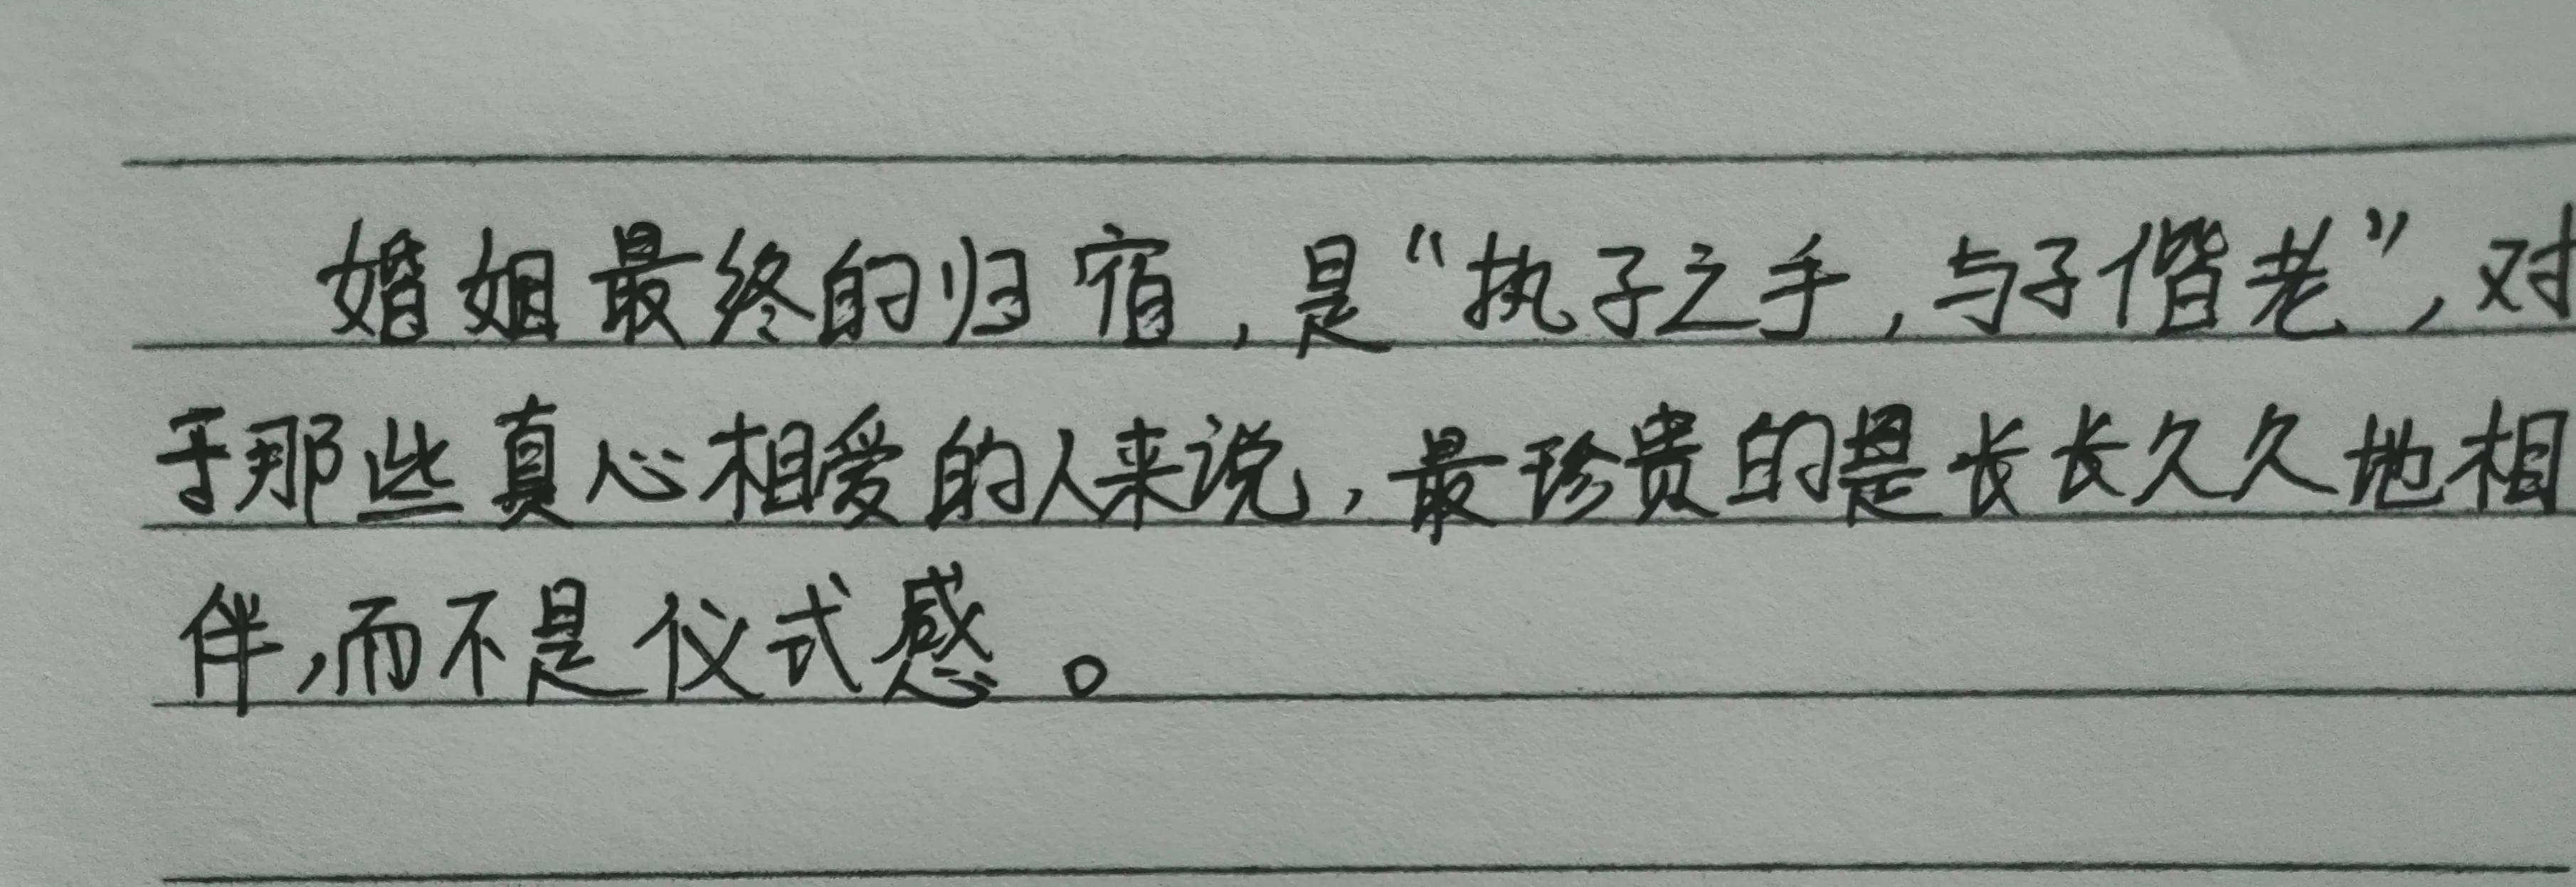 婚姻最终的归宿，是“执子之手，与子偕老”，对
于那些真心相爱的人来说，最珍贵的是长长久久地相
伴，而不是仪式感。